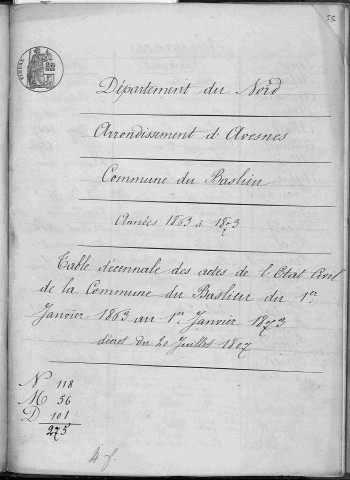 55
TIMBRE
Département du Nord
Arrondissement d'Avesnes
Commune du Baslieu
Années 1863 à 1873
Table décennale des actes de l'Etat Civil
de la Commune du Baslieu du 1er
Janvier 1863 au 1er Janvier 1873
décret du 20 Juillet 1807
N 118
M 56
D 101
275
4 f.